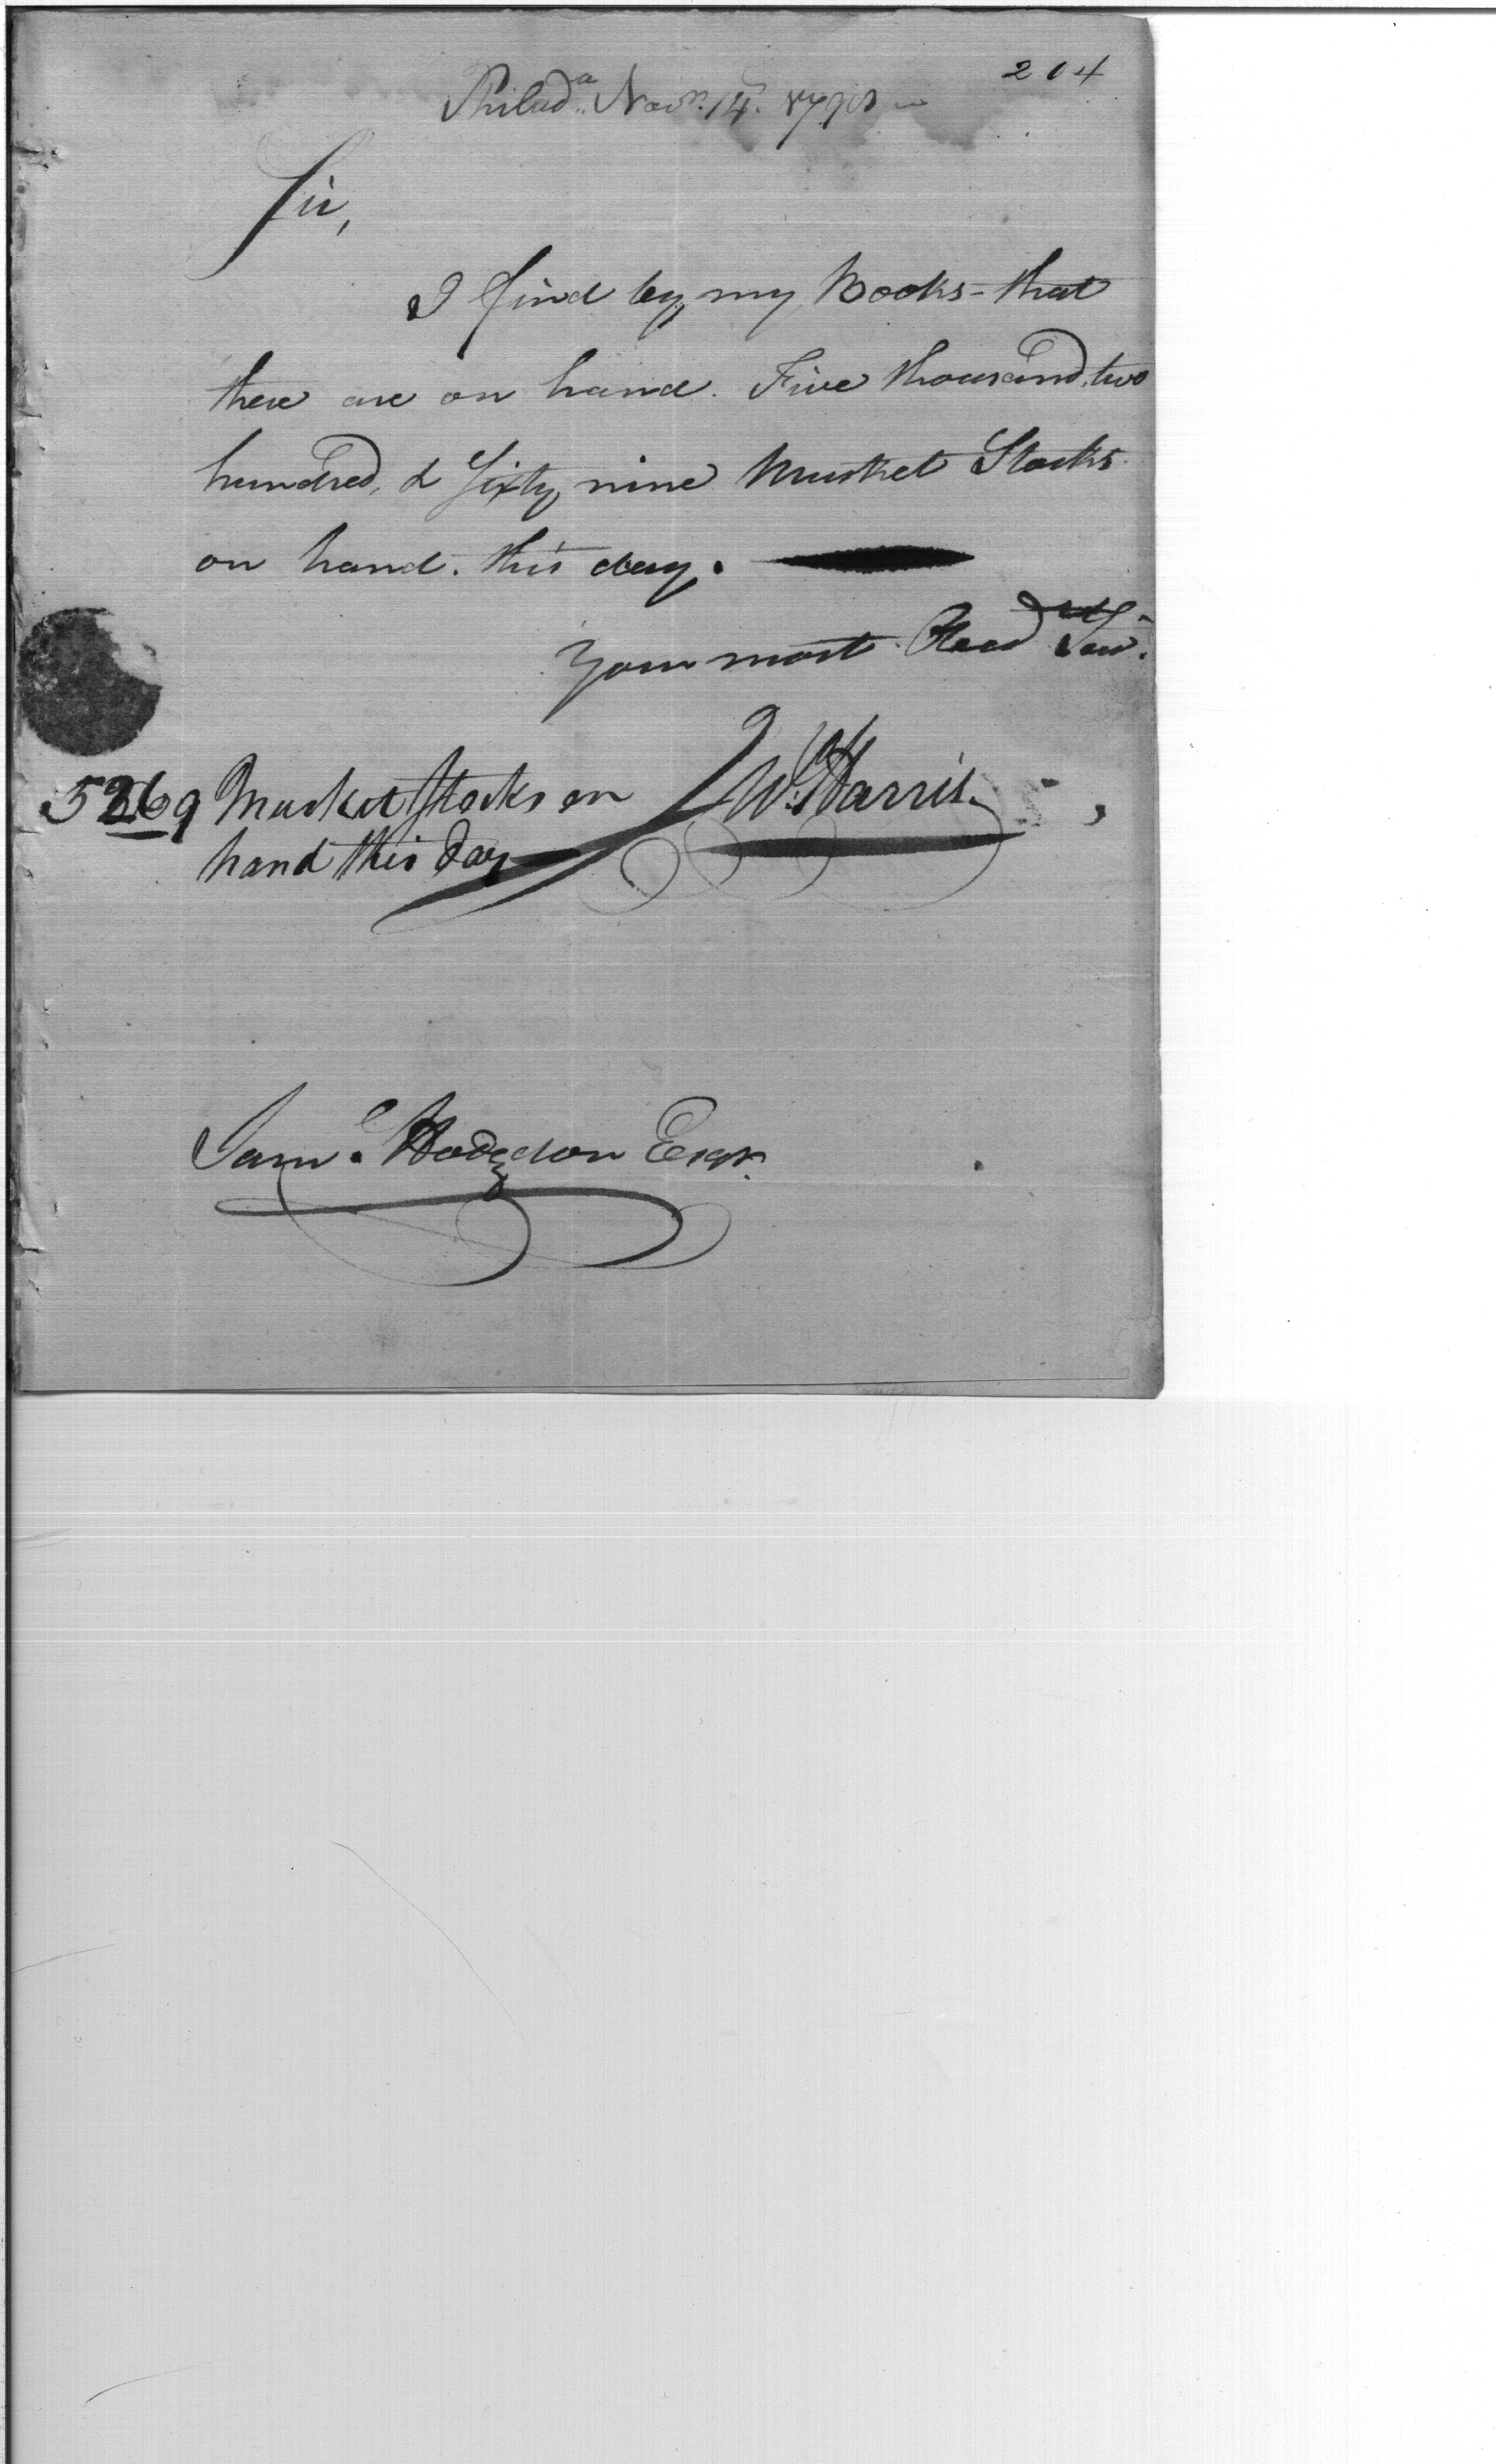 204
Philad.a Novr. 14. 1798
Sir,
I find by my Books - that
there are on hand. Five thousand, two
hundred, & Sixty nine Musket Stocks
on hand. this day.
Your most Obed Ser.
W. Harris
5269 Musket Stocks on
hand this day
Sam.l Hodgdon Esqr.